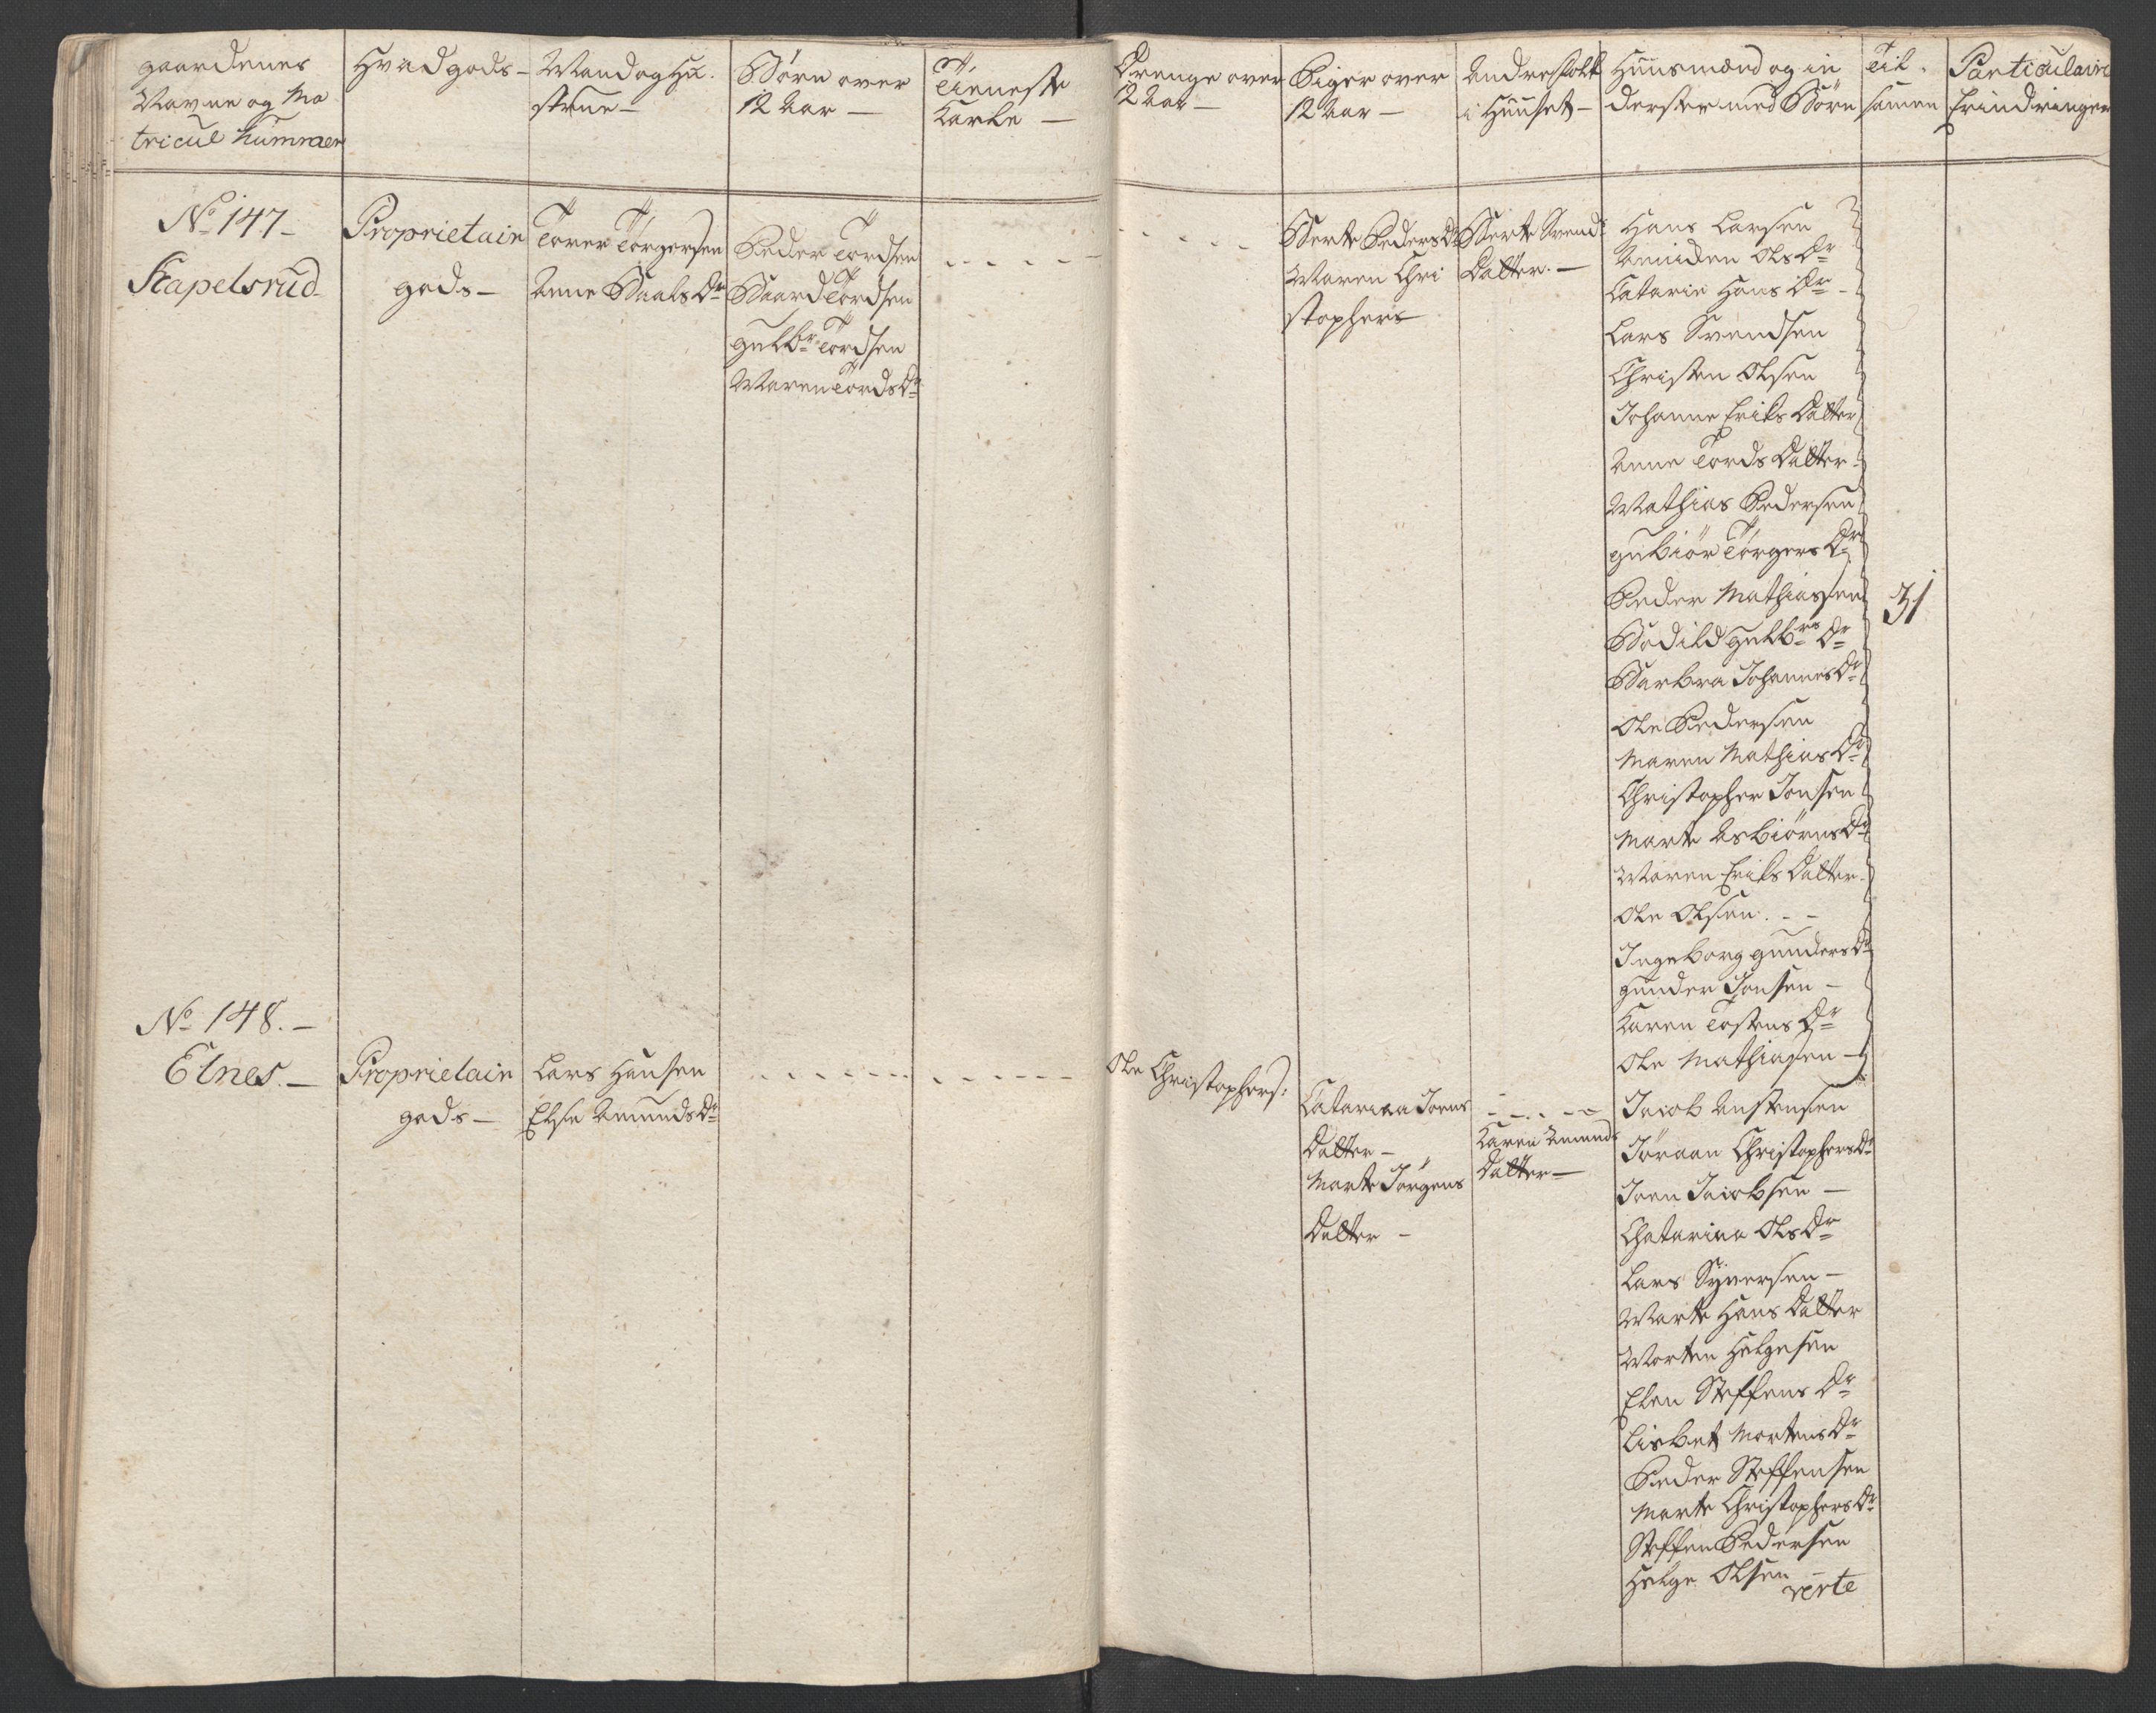 gaardenes
Navne og Ma
tricul Numraer
Hvad gods -
Mand og Hu.
strue -
Børn over
12 Aar -
Tieneste
Karle -
Drenge over
12 Aar -
Piger over
12 Aar -
Andre folk
i Huuset -
Huusmænd og in
derster med Børn
Til-
samen
Particulaire
Erindringer
No 147 -
Stapelsrud
Proprietair
gods -
Torer Torgersen
Anne Paals Dr
Peder Tordsen
Baard Tordsen
Gulbr Tordsen
Maren Tords Dr
Berte Peders Dr
Maren Chri
stophers
Berte Svends
Datter. -
Hans Larsen
Ols Dr
Catarin Hans Dr -
Lars Svendsen
Christen Olsen
Johanne Eriks Datter
Anne Tords Datter -
Mathias Pedersen
Gubiör Törgers Dr
Peder Mathiasen
Bodild Gulbrs Dr
Barbra Johannes Dr
Ole Pedersen
Maren Mathias Dr
Christopher Jonsen
Marte Asbiörns Dr
Maren Eriks Datter -
Ole Olsen . - -
Ingeborg Gunders Dr
Gunder Jonsen -
Karen Tostens Dr
Ole Mathiasen -
31
No 148. -
Elnes. -
Proprietair
gods -
Lars Hansen
Else Amunds Dr
Ole Christophers:
Catarina Joens
Datter -
Marte Jörgens
Datter -
Karen Amunds
Datter -
Jacob Austensen
Jöraan Christophers Dr
Joen Jacobsen -
Chatarina Ols Dr
Lars Syversen -
Marte Hans Datter
Morten Helgesen
Elen Steffens Dr
Lisbet Mortens Dr
Peder Steffensen
Marte Christophers Dr
Steffen Pedersen
Helge Olsen -
verte